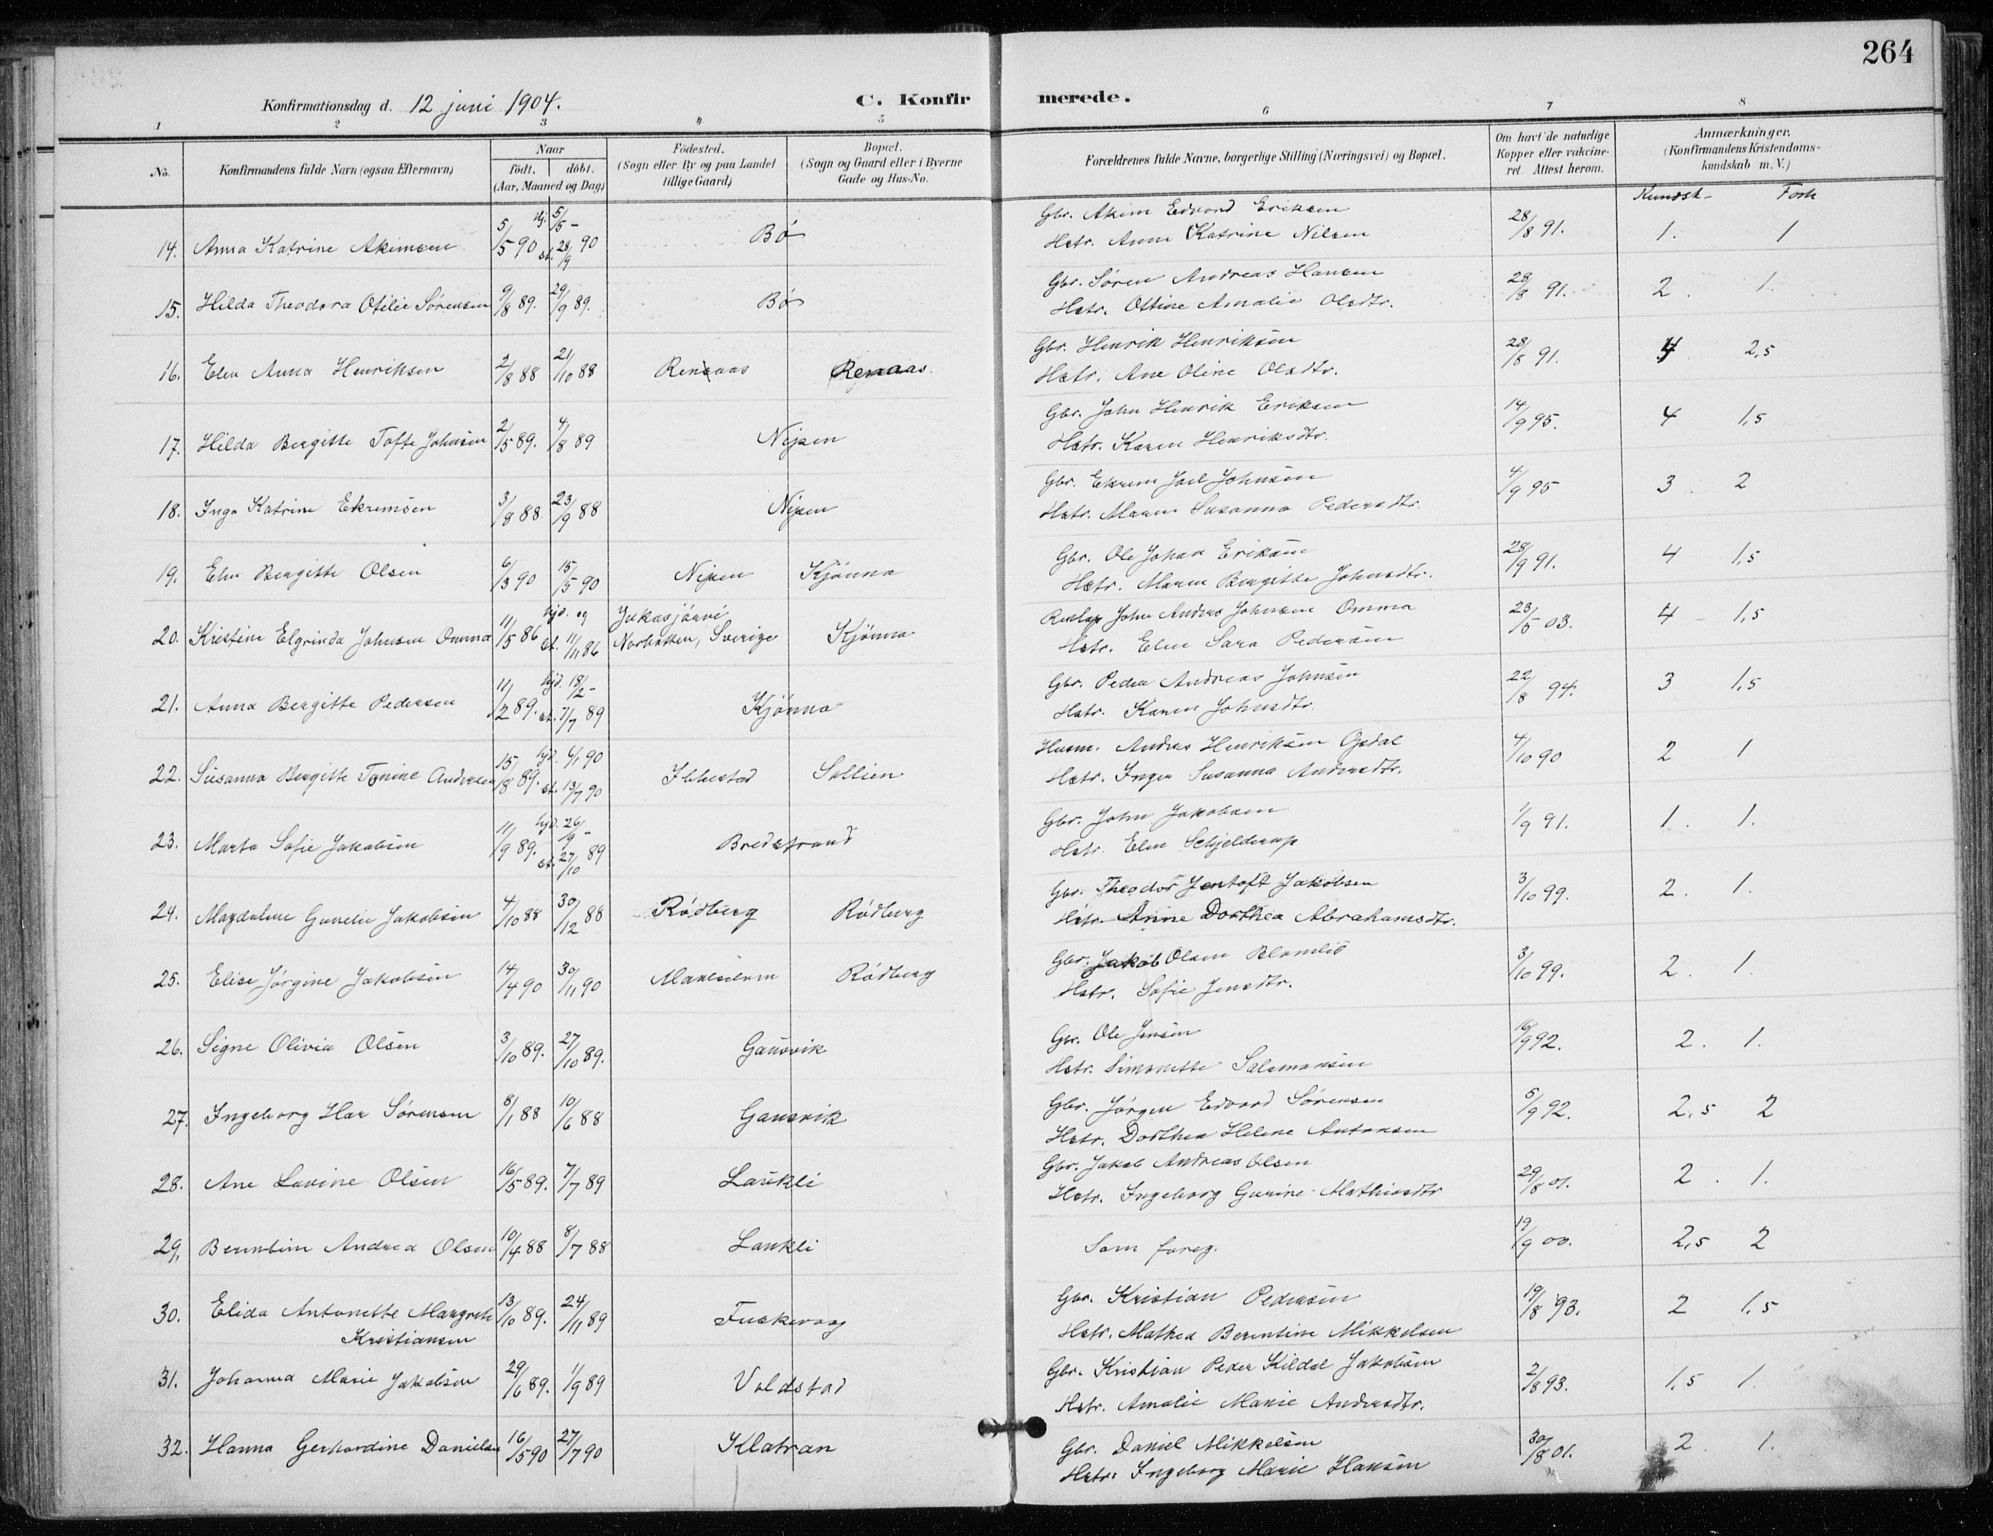 264
Konfirmationsdag d. 12 juni 1904.
C. Konfirmerede.
1 2 3 4 5 6 7 8
No.
Konfirmandens fulde Navn (ogsaa Efternavn)
Naar
født. døbt.
(Aar, Maaned og Dag)
Fødested.
(Sogn eller By og paa Landet
tillige Gaard)
Bopæl.
(Sogn og Gaard eller i Byerne
Gade og Hus-No.
Forældrenes fulde Navne, borgerlige Stilling (Næringsvei) og Bopæl.
Om havt de naturlige
Kopper eller vakcine-
ret. Attest herom.
Anmærkninger.
(Konfirmandens Kristendoms-
kundskab m. V.)
Kundsk. Forh
14. Anna Katrine Akimsen 5/5 90 hj. 5/5 - st. 28/9 90 Bø Gbr. Akim Edvard Eriksen 28/8 91. 1. 1
Hstr. Anne Katrine Nilsen
15. Hilda Theodora Otilie Sørensen 9/8 89. 29/9 89. Bø Gbr. Søren Andreas Hansen 28/8 91. 2. 1.
Hstr. Ottine Amalie Olsdtr.
16. Elen Anna Henriksen 2/8 88 21/10 88 Renaas Renaas Gbr. Henrik Henriksen 28/8 91. 4 2,5
Hstr. Ane Oline Olsdtr.
17. Hilda Bergitte Tofte Johnsen 2/5 89. 4/8 89 Nipen Gbr. John Henrik Eriksen 14/9 95. 4 1,5
Hstr. Karen Henriksdtr.
18. Inga Katrine Ekremsen 3/8 88 23/9 88 Nipen Gbr. Ekrem Joel Johnsen 4/9 95 3. 2
Hstr. Maren Susanna Pedersdtr.
19. Elen Bergitte Olsen 6/3 90 15/5 90 Nipen Kjønna Gbr. Ole Johan Eriksen 28/9 91. 4 1,5
Hstr. Maren Bergitte Johnsdtr.
20. Kristine Elgrinda Johnsen Omma 11/5 86 hjd. og st. 11/11 86 Jukasjärvi
Norbotten, Sverige Kjønna John Andres Johnsen Omma 23/5 03. 4 - 1,5
Hstr. Elen Sara Pedersen
21. Anna Bergitte Pedersen 11/2 89. hjd. 18/2 - st. 7/7 89 Kjønna Gbr. Peder Andreas Johnsen 22/8 94. 3 1,5
Hstr. Karen Johnsdtr.
22. Susanna Bergitte Tonine Andersen 15/8 89. hjd. 6/1 90 st. 13/7 90 Ibbestad Sollien Husm. Andreas Henriksen Opdal 4/10 90 2 1
Hstr. Inger Susanna Andersdtr.
23. Marta Sofie Jakobsen 11/9 89. hjd. 26/9 - st. 27/10 89 Bredstrand Gbr. John Jakobsen 1/9 91. 1. 1.
Hstr. Elen Schjelderup
24. Magdalene Gunelie Jakobsen 4/10 88 30/12 88 Rødberg Rødberg Gbr. Theodor Jentoft Jakobsen 3/10 99. 2. 1.
Hstr. Anne Dorthea Abrahamsdtr.
25. Elise Jørgine Jakobsen 14/4 90 30/11 90 Rødberg Gbr. Jakob Olsen 3/10 99. 2. 1.
Hstr. Sofie Jensdtr.
26. Signe Olivia Olsen 3/10 89. 27/10 89. Gausvik Gbr. Ole Jensen 16/9 92. 2. 1.
Hstr. Simonette Salamonsen
27. Ingeborg Sørensen 8/1 88 10/6 88 Gausvik Gbr. Jørgen Edvard Sørensen 5/9 92. 2,5 2
Hstr. Dorthea Helene Antonsen
28. Ane Lovine Olsen 16/5 89. 7/7 89 Laukli Gbr. Jakob Andreas Olsen 29/8 01. 2. 1.
Hstr. Ingeborg Gurine Mathiasdtr
29. Berentine Andrea Olsen 10/4 88 8/7 88 Laukli Som foreg. 19/9 00. 2,5 2
30. Elida Antonette Margrete 13/10 89. 24/11 89 Fuskevaag Gbr. Kristian Pedersen 19/8 93. 2 1.5
Kristiansen Hstr. Mathea Berentine Mikkelsen
31. Johanna Marie Jakobsen 29/6 89. 1/9 89 Voldstad Gbr. Kristian Peder Kildal Jakobsen 2/8 93. 1.5 1.
Hstr. Amalie Marie Andersdtr.
32. Hanna Gerhardine Danielsen 16/5 90 27/7 90 Klatran Gbr. Daniel Mikkelsen 30/8 01. 2. 1.
Hstr. Ingeborg Marie Hansen